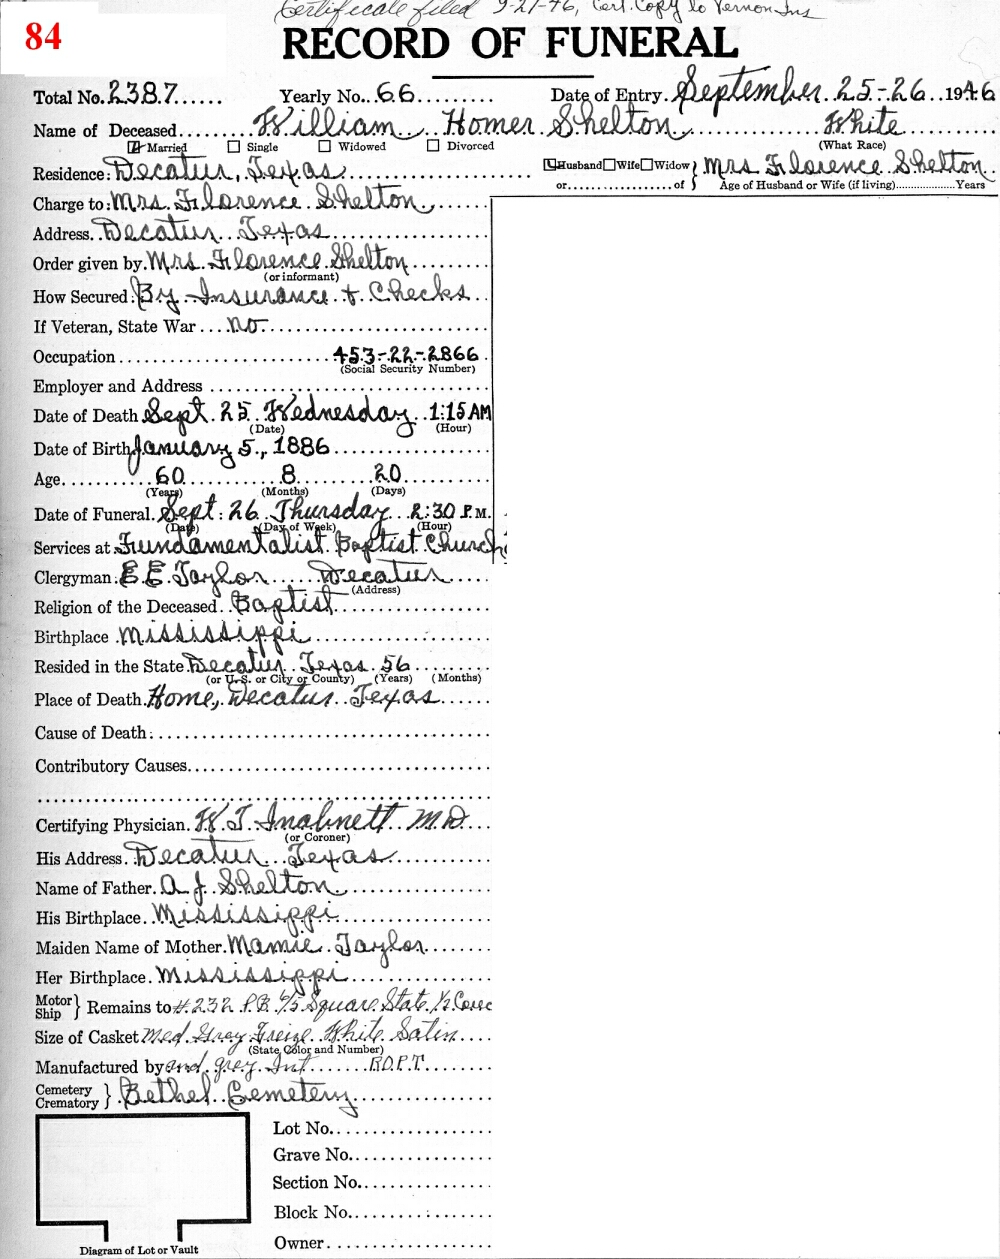 Certificate filed 9-27-46, Cert. Copy to Vernon Ins
84
RECORD OF FUNERAL
Total No. 2387 Yearly No. 66 Date of Entry. September 25-26 1946
Name of Deceased William Homer Shelton White
Married Single Widowed Divorced (What Race)
Residence: Decatur, Texas Husband Wife Widow } Mrs Florence Shelton
or of Age of Husband or Wife (if living) Years
Charge to: Mrs. Florence Shelton
Address. Decatur Texas
Order given by. Mrs. Florence Shelton
(or informant)
How Secured: By Insurance + Checks
If Veteran, State War no
Occupation 453-22-2866
(Social Security Number)
Employer and Address
Date of Death Sept. 25 Wednesday 1:15 AM
(Date) (Hour)
Date of Birth January 5, 1886
Age 60 8 20
(Years) (Months) (Days)
Date of Funeral. Sept. 26 Thursday 2:30 P.M.
(Date) (Day of Week) (Hour)
Services at Fundamentalist Baptist Church
Clergyman: E.E. Taylor Decatur
(Address)
Religion of the Deceased Baptist
Birthplace Mississippi
Resided in the State Decatur Texas 56
(or U.S. or City or County) (Years) (Months)
Place of Death Home, Decatur Texas
Cause of Death:
Contributory Causes
Certifying Physician. W.T. Inabnett M.D.
(or Coroner)
His Address. Decatur Texas
Name of Father. A J. Shelton
His Birthplace Mississippi
Maiden Name of Mother. Mamie Taylor
Her Birthplace. Mississippi
Motor Ship } Remains to #232 P.B. 6/5 Square State ½ Couc
Size of Casket Med. Gray Freize White Satin
(State Color and Number)
Manufactured by and grey Int R.O.P.T.
Cemetery Crematory } Bethel Cemetery
Lot No.
Grave No.
Section No.
Block No.
Owner
Diagram of Lot or Vault